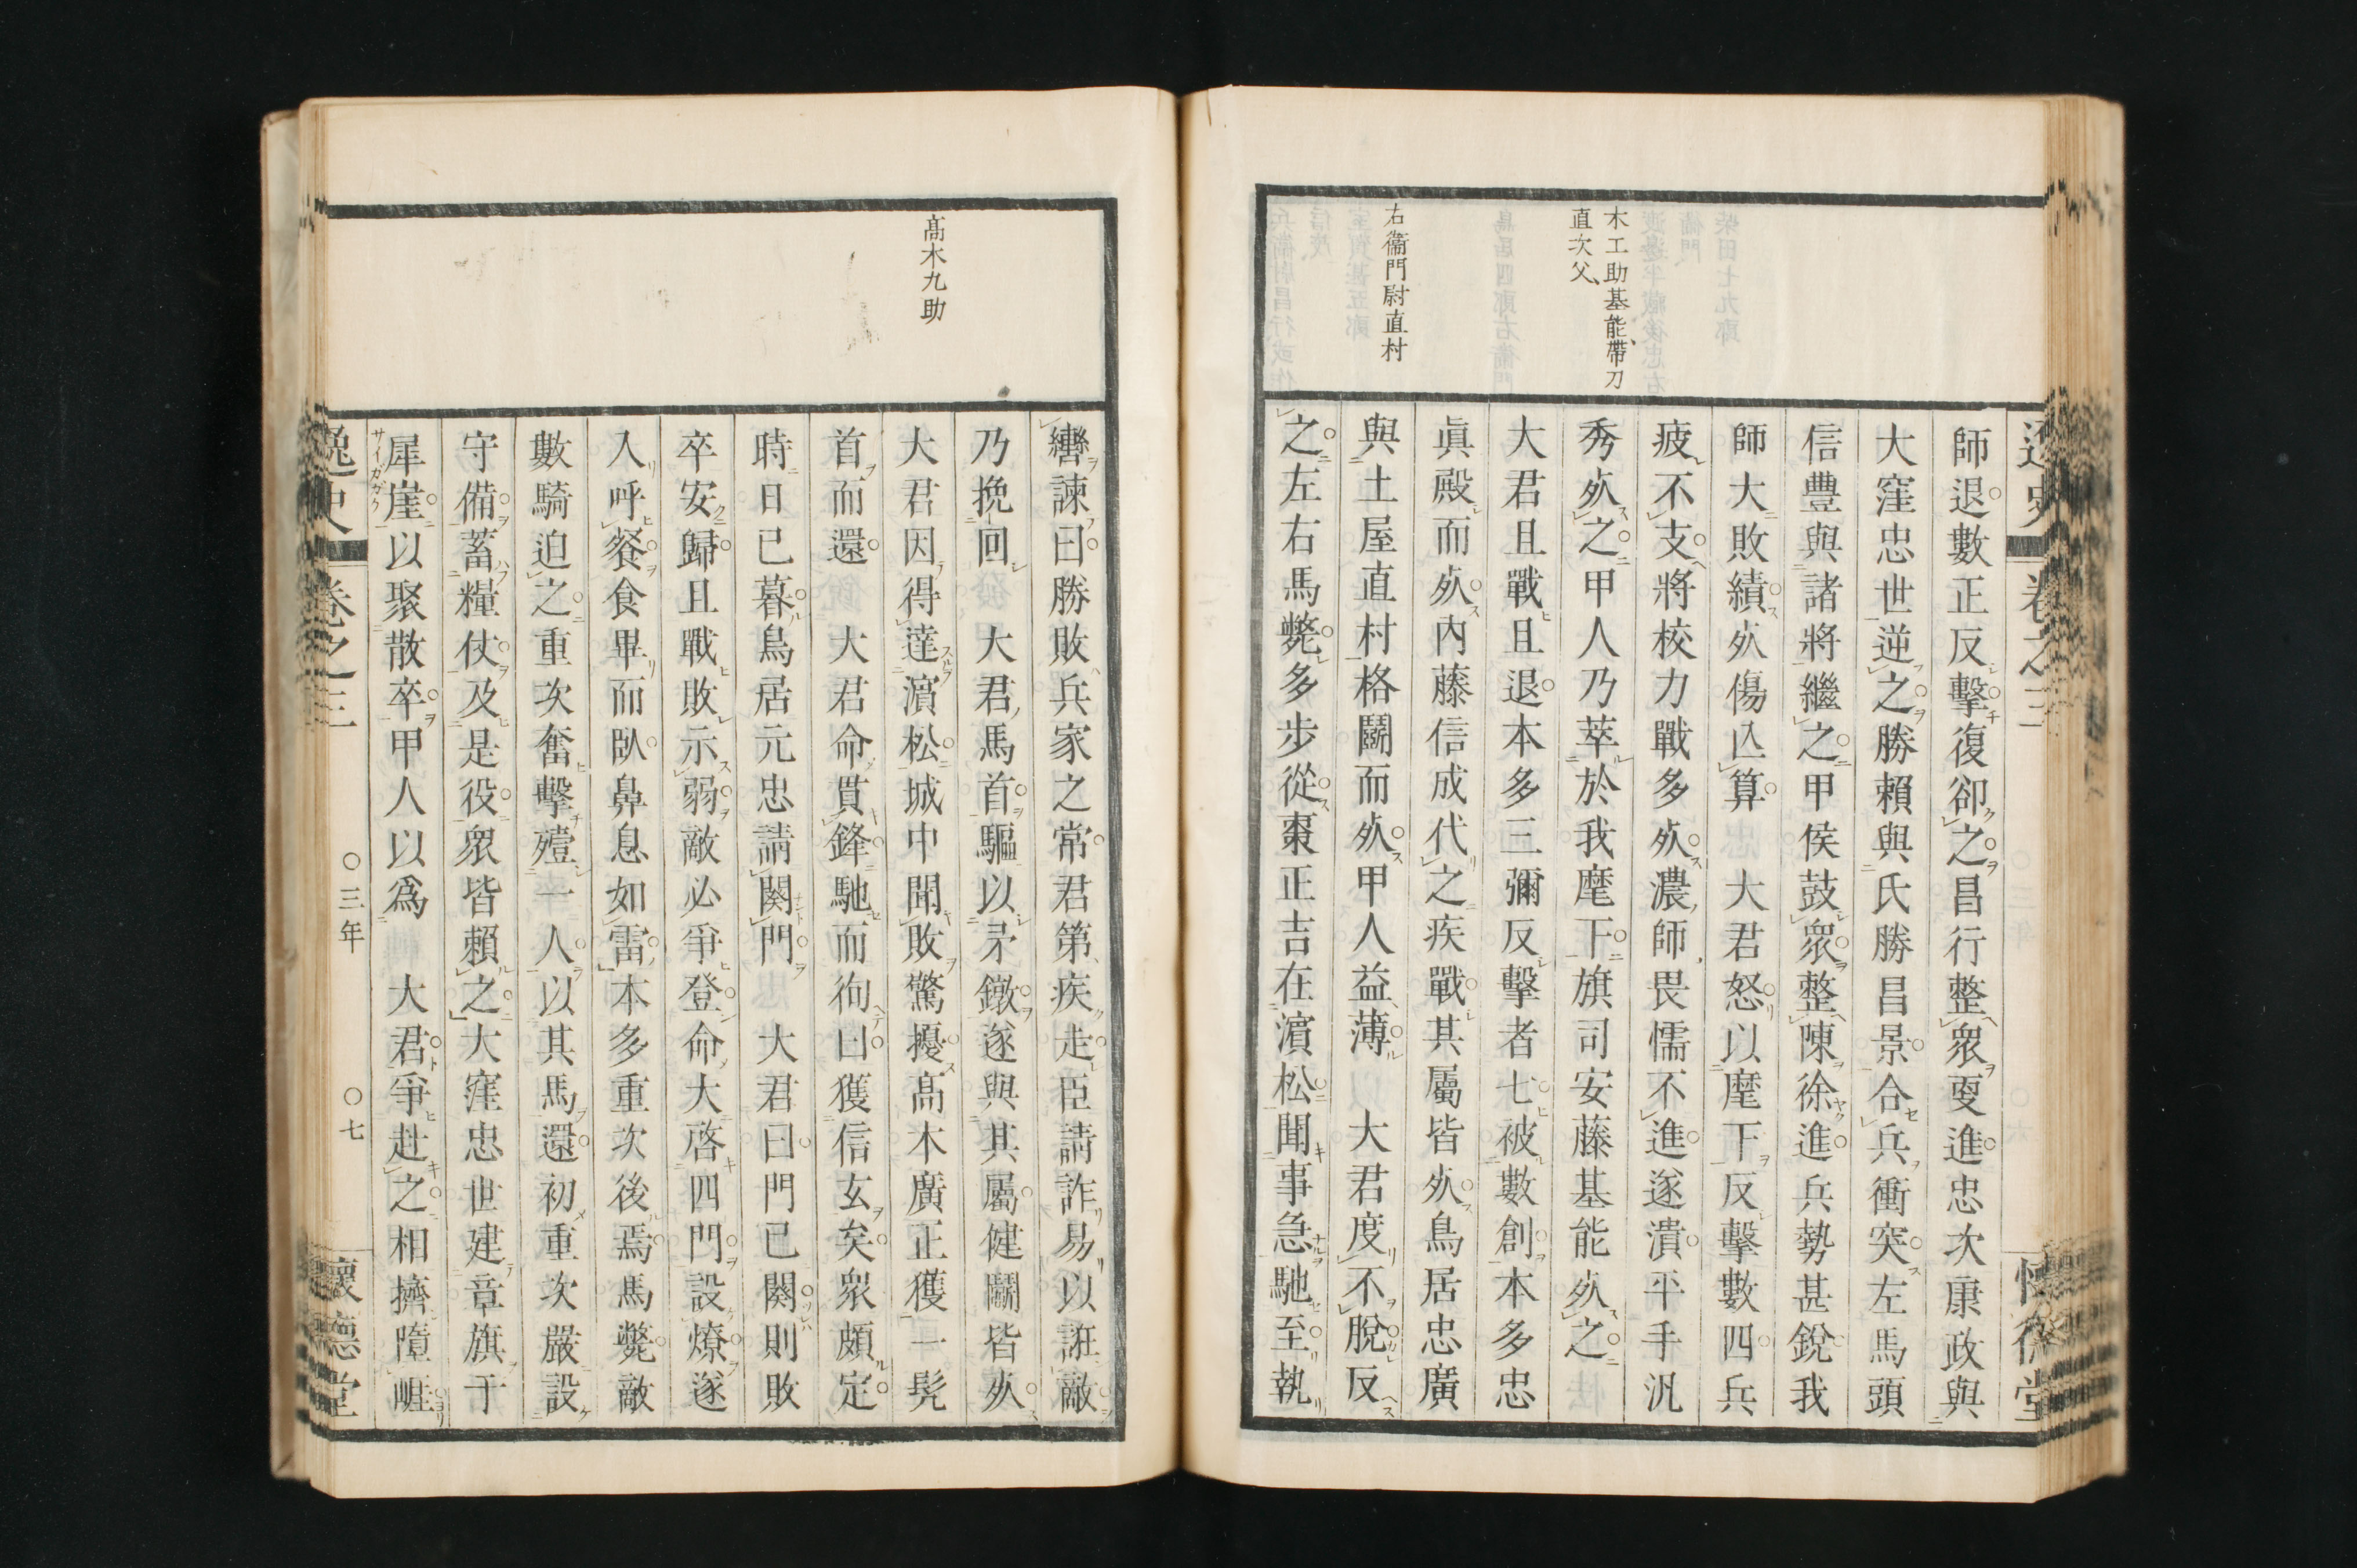 木工助基能、帶刀
直次父、
右衞門尉直村
師退數正反擊復卻之昌行整衆更進忠次康政與
大窪忠世逆之勝賴與氏勝昌景合兵衝突左馬頭
信豐與諸將繼之甲侯鼓衆整陳徐進兵勢甚銳我
師大敗績㱙傷亾算 大君怒以麾下反擊數四兵
疲不支將校力戰多㱙濃師畏懦不進遂潰平手汎
秀㱙之甲人乃萃於我麾下旗司安藤基能㱙之
大君且戰且退本多三彌反擊者七被數創本多忠
眞殿而㱙內藤信成代之疾戰其屬皆㱙鳥居忠廣
與土屋直村格鬭而㱙甲人益薄 大君度不脫反
之左右馬斃多步從棗正吉在濵松聞事急馳至執
高木九助
轡諫曰勝敗兵家之常君第疾走臣請詐易以誑敵
乃挽回 大君馬首驅以矛鐓遂與其屬健鬭皆㱙
大君因得達濵松城中聞敗驚擾高木廣正獲一髡
首而還 大君命貫鋒馳而徇曰獲信玄矣衆頗定
時日已暮鳥居元忠請闋門 大君曰門已闋則敗
卒安歸且戰敗示弱敵必爭登命大啓四門設燎遂
入呼餐食畢而臥鼻息如雷本多重次後焉馬斃敵
數騎迫之重次奮擊殪一人以其馬還初重次嚴設
守備蓄糧仗及是役衆皆賴之大窪忠世建旗于
犀崖以聚散卒甲人以爲 大君爭赴之相擠墮崕
逸史 卷之三 〇三年 〇七 懷德堂